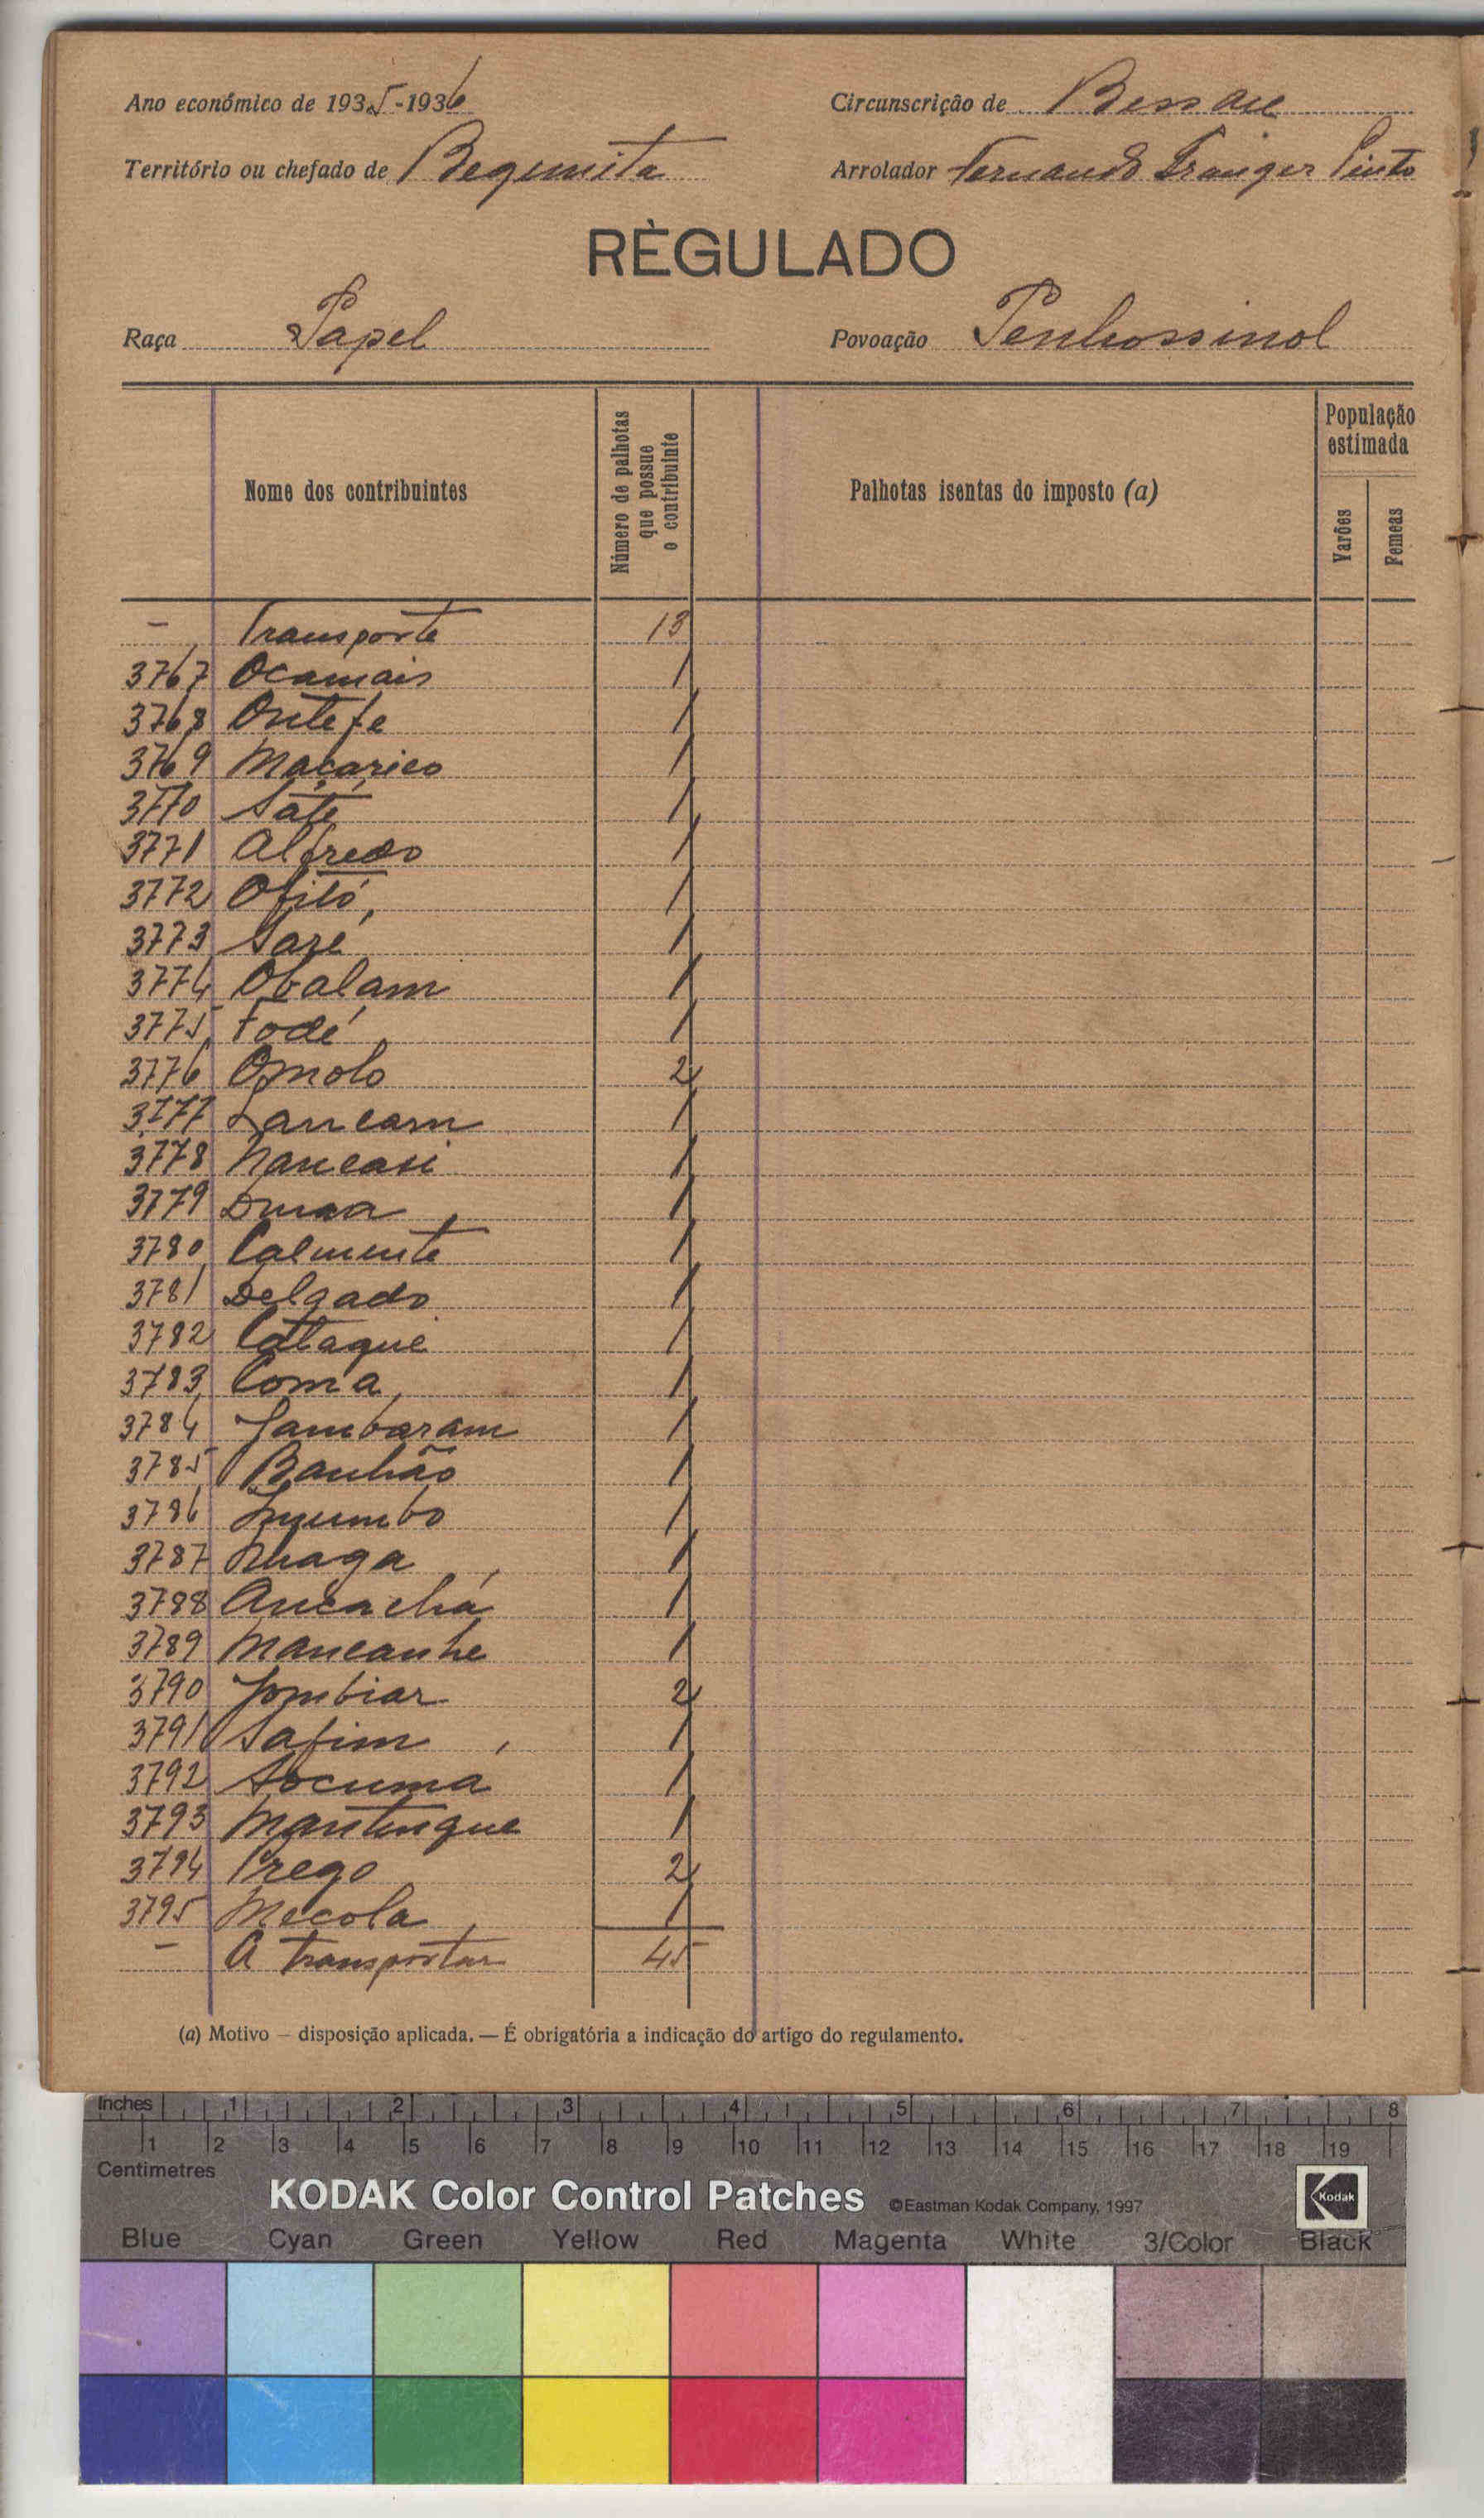 Ano económico de 1935-1936
Circunscrição de Bissau
Território ou chefado de Bequmita
Arrolador Fernando Pinto
RÈGULADO
Raça Papel
Povoação Penhossinol
Nome dos contribuintes
Número de palhotas que possue o contribuinte
Palhotas isentas do imposto (a)
População estimada
Varões
Femeas
- Transporte 13
3767 Ocamais 1
3768 Ontefe 1
3769 Maçarico 1
3770 Sáté 1
3771 Alfredo 1
3772 Ofiló 1
3773 Saré 1
3774 Obalam 1
3775 Fodé 1
3776 Omolo 2
3777 Lancam 1
3778 Nancasi 1
3779 1
3780 Calmente 1
3781 Delgado 1
3782 Cataque 1
3783 Comá 1
3784 Jambaram 1
3785 Banhão 1
3786 Inumbo 1
3787 Nhaga 1
3788 Ancachá 1
3789 Mancanhe 1
3790 Jombiar 2
3791 Safim 1
3792 Socumá 1
3793 Mantinque 1
3794 Prego 2
3795 Mecola 1
- A transportar 45
(a) Motivo — disposição aplicada. — É obrigatória a indicação do artigo do regulamento.
Inches 1 2 3 4 5 6 7 8
1 2 3 4 5 6 7 8 9 10 11 12 13 14 15 16 17 18 19
Centimetres
KODAK Color Control Patches ©Eastman Kodak Company, 1997 Kodak
Blue Cyan Green Yellow Red Magenta White 3/Color Black